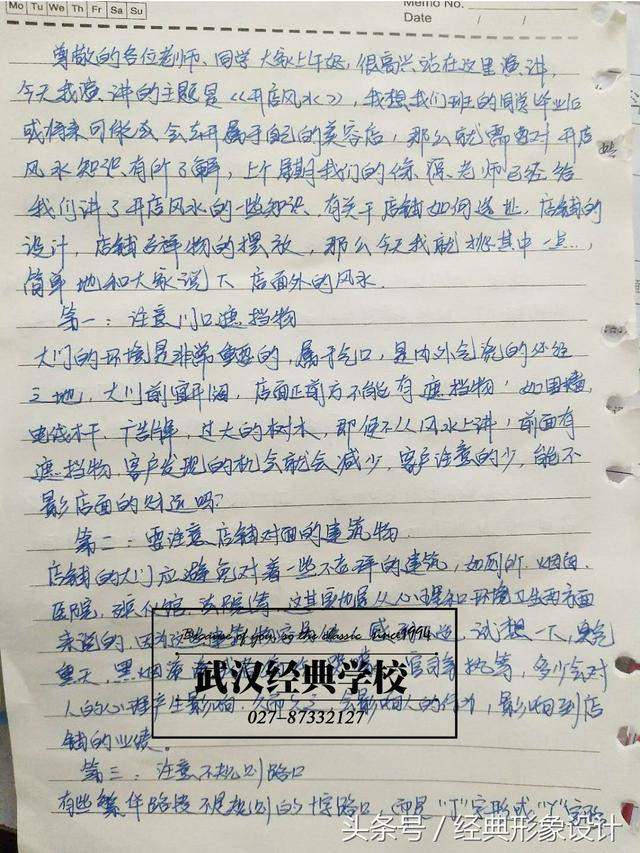 Mo Tu We Th Fr Sa Su
Memo No.
Date / /
尊敬的各位老师、同学大家上午好,很高兴站在这里演讲,
今天我演讲的主题是《开店风水》,我想我们班的同学毕业后
或将来可能会去开属于自己的美容店,那么就需要对开店
风水知识有所了解,上个星期我们的徐 老师已经给
我们讲了开店风水的一些知识,有关于店铺如何选址,店铺的
设计,店铺吉祥物的摆放,那么今天我就挑其中一点…,
简单地和大家说下店面外的风水.
第一:注意门口遮挡物
大门的环境是非常重要的,属于气口,是内外气流的必经
之地,大门前宜开阔,店面正前方不能有遮挡物,如围墙,
电线杆、广告牌,过大的树木,即使不从风水上讲,前面有
遮挡物,客户发现的机会就会减少,客户注意的少,能不
影店面的财运吗?
第二:要注意店铺对面的建筑物.
店铺的大门应避免对着一些不吉祥的建筑,如厕所、烟囱、
医院,殡仪馆、法院等,这其实也是从心理和环境卫生两方面
来说的,因为这些建筑 试想一下,臭气
熏天,黑烟滚滚 官司 等,多少会对
人的心理产生影响, 会影响人的行为,影响到店
铺的业绩。
Because of this is the classic since1994
武汉经典学校
027-87332127
第三:注意不规则路口
有些繁华路段不是规则的十字路口,而是"J"字形或"Y"字形
头条号/经典形象设计